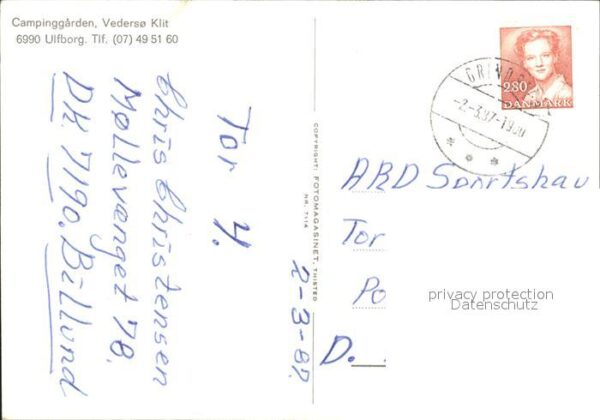 Campinggården, Vedersø Klit
6990 Ulfborg. Tlf. (07) 49 51 60
Chris Christensen
Møllevenget 78.
DK. 7190. Billund
Tor 4.
2-3-87
COPYRIGHT: FOTOMAGASINET, THISTED
280
DANMARK
-2.-3.87.-1930
ARD Sportshau
Tor
Po
D.
privacy protection
Datenschutz